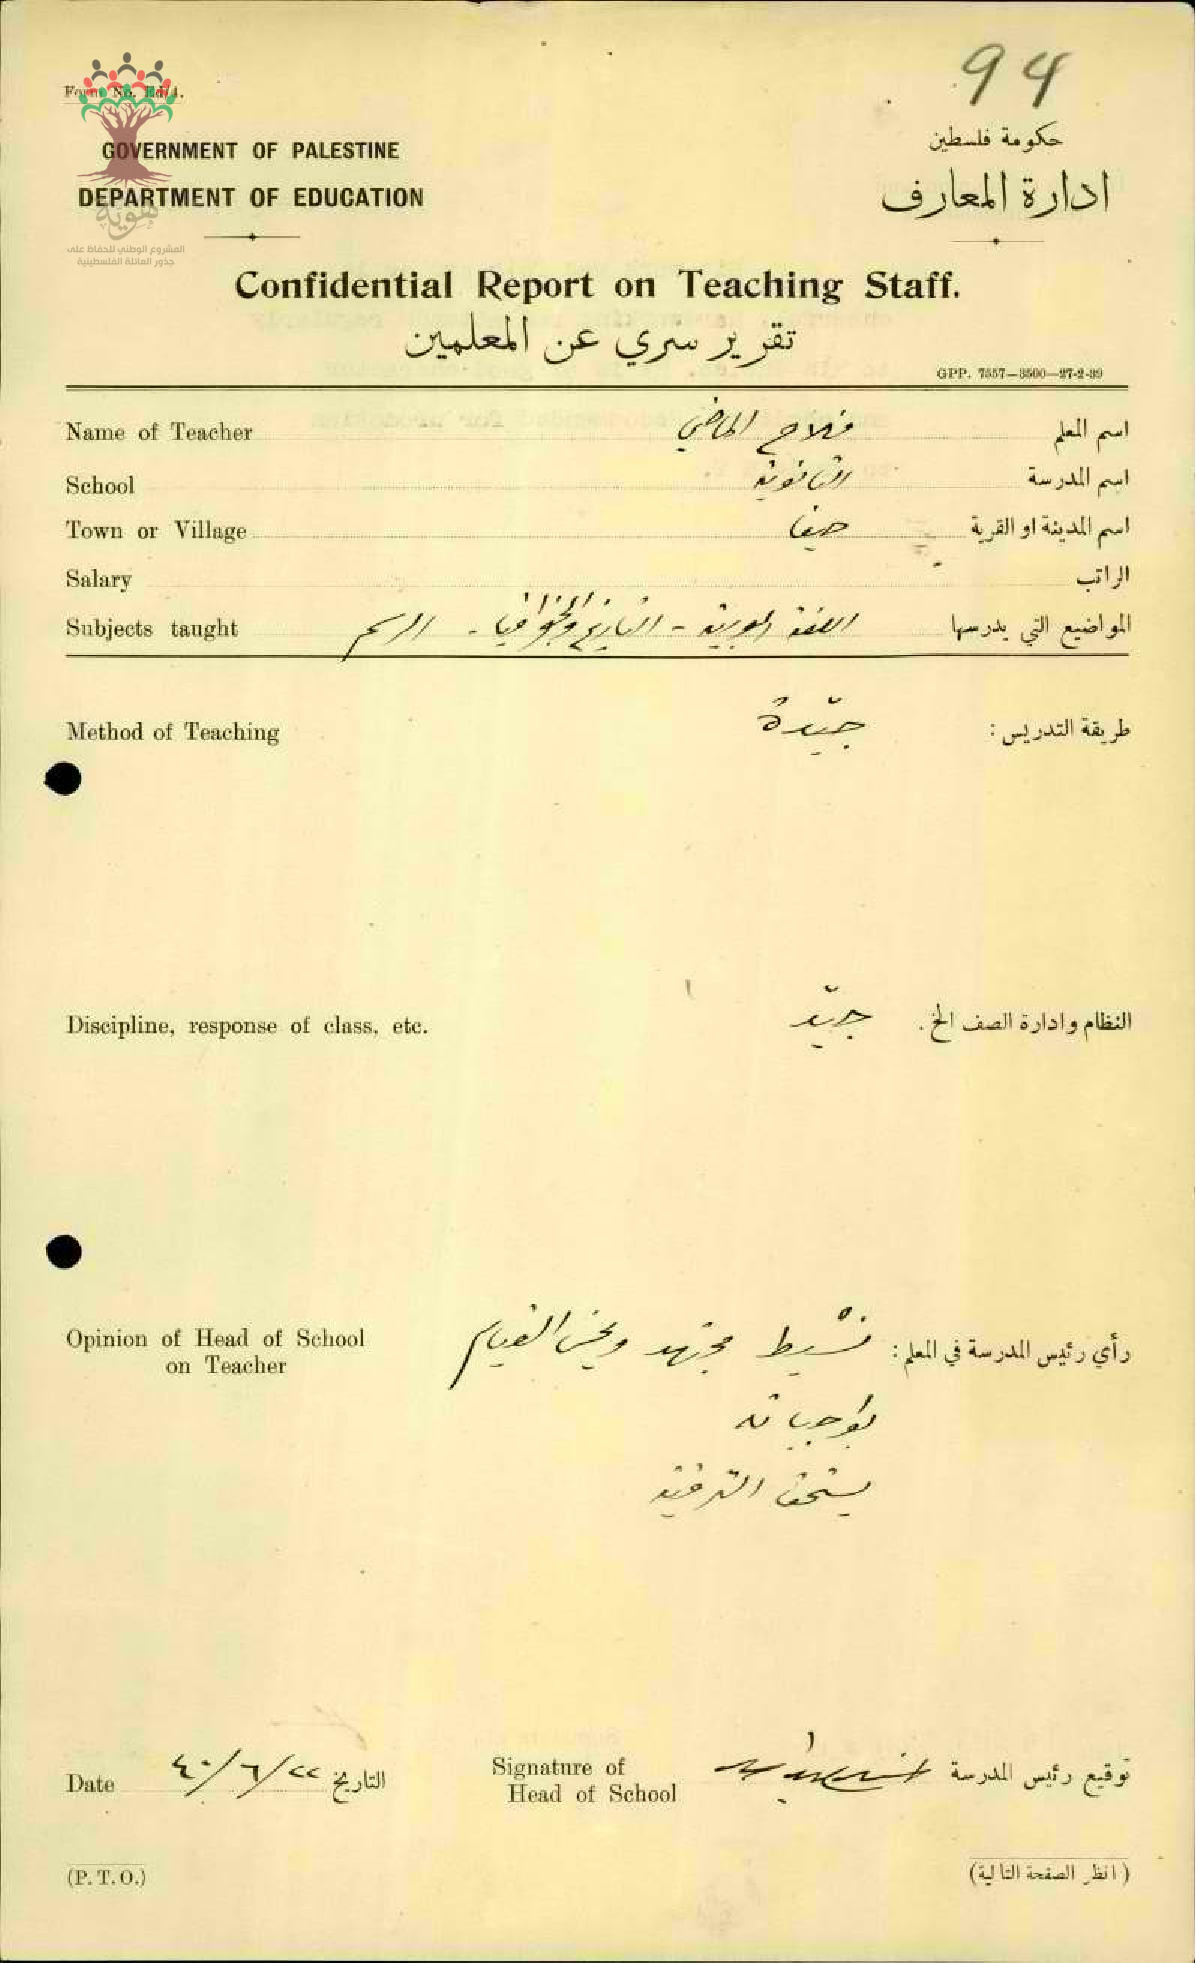 94
Form No. Ed/4.
GOVERNMENT OF PALESTINE
DEPARTMENT OF EDUCATION
حكومة فلسطين
ادارة المعارف
هوية
المشروع الوطني للحفاظ على
جذور العائلة الفلسطينية
Confidential Report on Teaching Staff.
تقرير سري عن المعلمين
GPP. 7557—3500—27-2-39
Name of Teacher فلاح الماضي اسم المعلم
School الثانوية اسم المدرسة
Town or Village حيفا اسم المدينة او القرية
Salary الراتب
Subjects taught اللغة العربية - التاريخ والجغرافيا - الرسم المواضيع التي يدرسها
Method of Teaching جيّدة طريقة التدريس :
Discipline, response of class, etc. جيّد النظام وادارة الصف الخ .
Opinion of Head of School نشيط مجتهد ويحسن القيام رأي رئيس المدرسة في المعلم :
on Teacher
بواجباته
يستحق الترقية
Date ٢٢/٦/٤٠ التاريخ Signature of توقيع رئيس المدرسة
Head of School
(P. T. O.) (انظر الصفحة التالية)